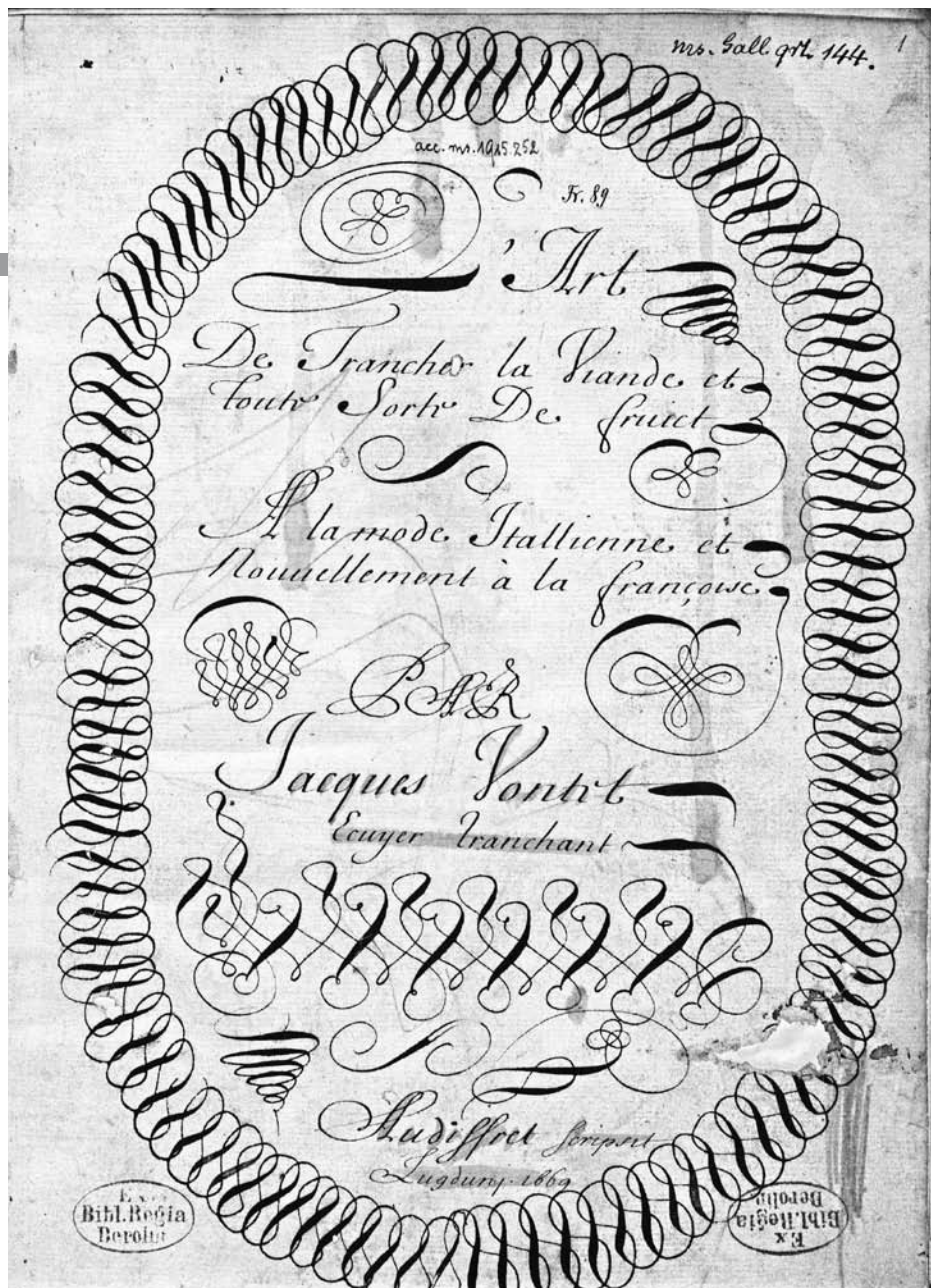 ms. Gall. qrt. 144.
1
acc. ms. 1915.252
Fr. 89
L'Art
De Trancher la Viande et
toute Sorte De fruict
A la mode Itallienne et
Nouuellement à la françoise
PAR
Jacques Vontet
Ecuyer tranchant
Audiffret scripsit
Lugduni 1669
Ex
Bibl. Regia
Berolin
Ex
Bibl. Regia
Berolin